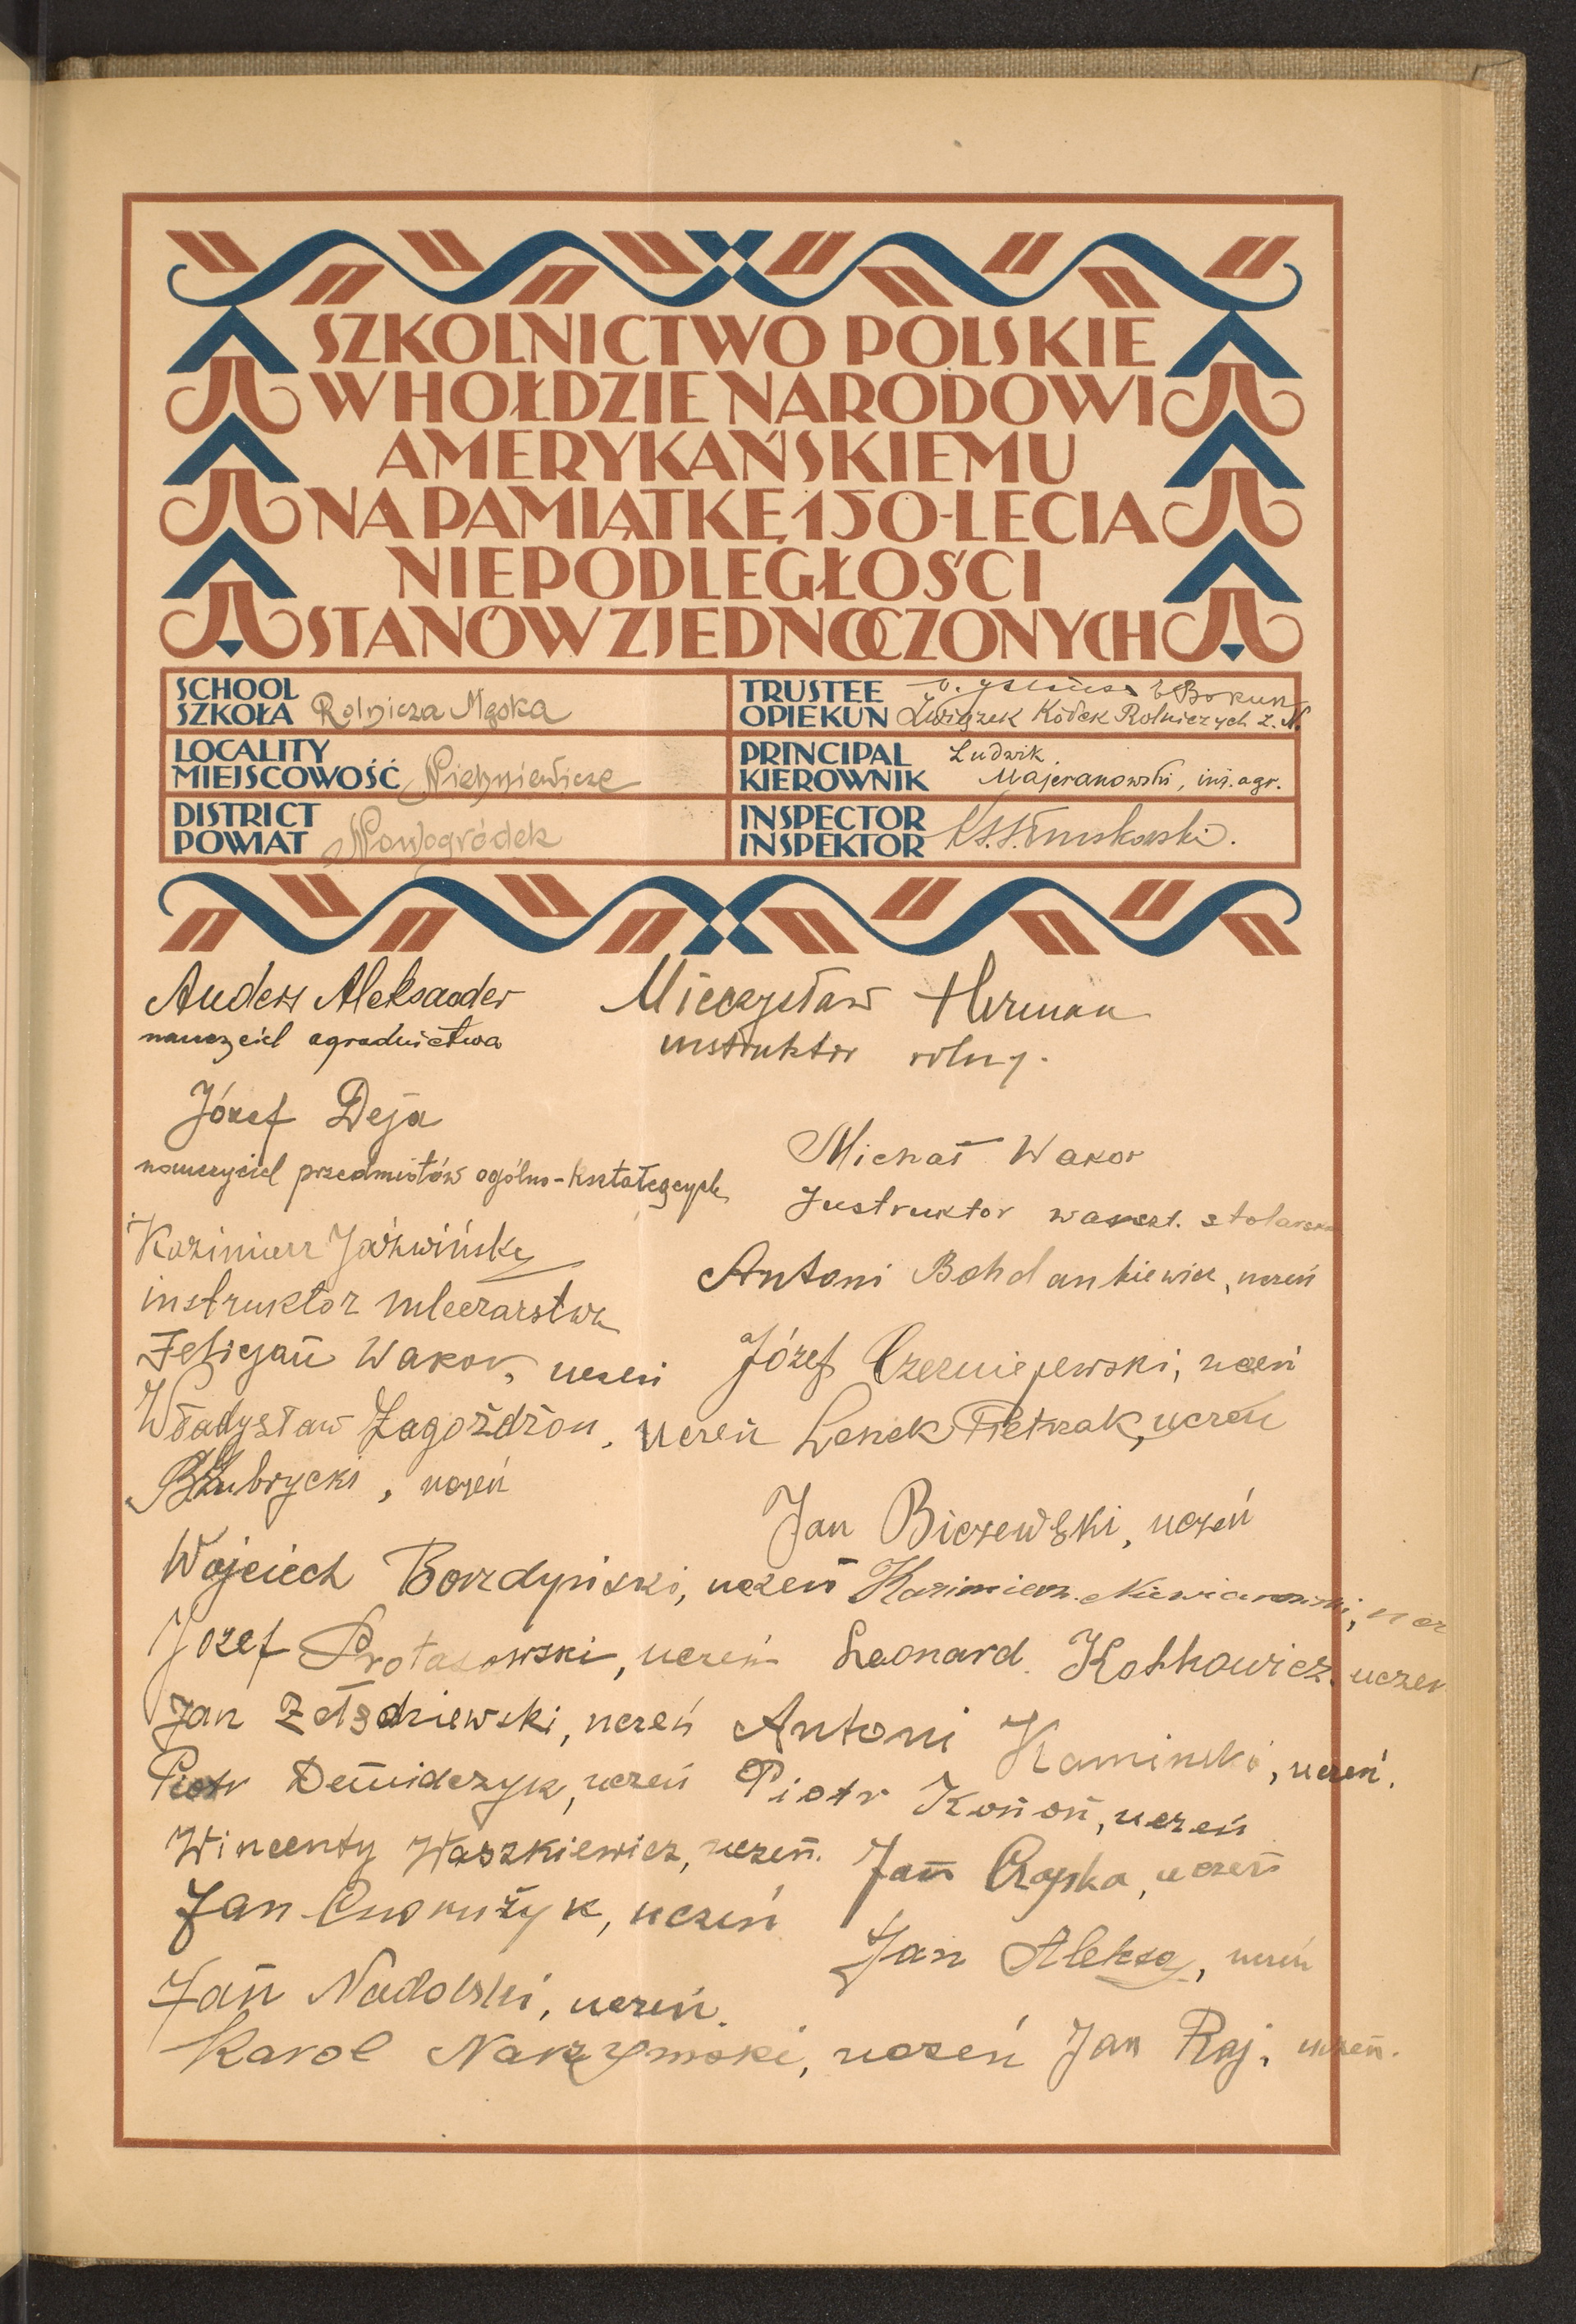 SZKOLNICTWO POLSKIE
W HOŁDZIE NARODOWI
AMERYKAŃSKIEMU
NA PAMIĄTKĘ 150-LECIA
NIEPODLEGŁOŚCI
STANÓW ZJEDNOCZONYCH
SCHOOL
SZKOŁA Rolnicza Męska
LOCALITY
MIEJSCOWOŚĆ Niehniewicze
DISTRICT
POWIAT Nowogródek
TRUSTEE Bokun
OPIEKUN Związek Kółek Rolniczych z. N.
PRINCIPAL Ludwik
KIEROWNIK Majeranowski, inż. agr.
INSPECTOR
INSPEKTOR
Anders Aleksander
nauczyciel ogrodnictwa
Mieczysław Herman
instruktor rolny.
Józef Deja
nauczyciel przedmiotów ogólno-kształcących
Michał Wakor
Instruktor warszt. stolarsk
Kazimierz Jaźwiński
instruktor mleczarstwa
Antoni Bohdankiewicz, uczeń
Felicjan Wakor, uczeń
Józef Czerniejewski, uczeń
Władysław Zagożdżon, uczeń
Leszek Pietrzak, uczeń
Zubrycki, uczeń
Jan Biczewski, uczeń
Wojciech Borzdyński, uczeń
Kazimierz Niewiarowski, ucz
Józef Protasowski, uczeń
Leonard Kotkowicz uczeń
Jan Żołędziewski, uczeń
Antoni Kamiński, uczeń.
Piotr Demidczyk, uczeń
Piotr Konoń, uczeń
Wincenty Waszkiewicz, uczeń.
Jan Czapka, uczeń
Jan uczeń
Jan Aleksa, uczeń
Jan Nadolski, uczeń.
Karol Narzymski, uczeń
Jan Raj, uczeń.